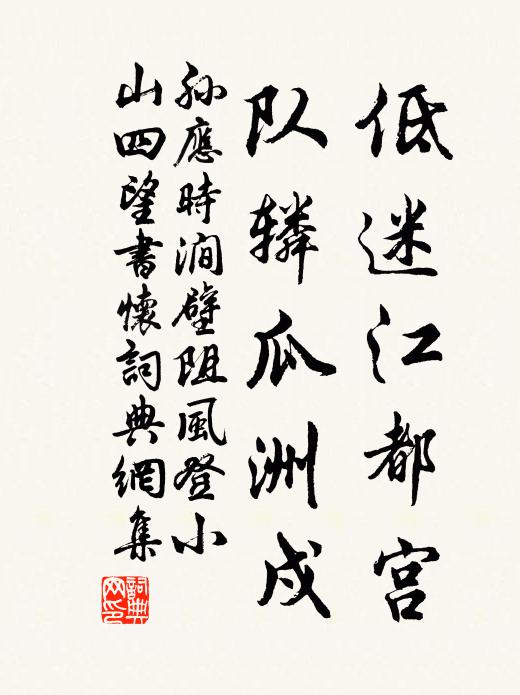 低迷江都宫
队辚瓜洲戍
孙應時澗壁阻風登小
山四望書懷詞典網集
詞典
网印